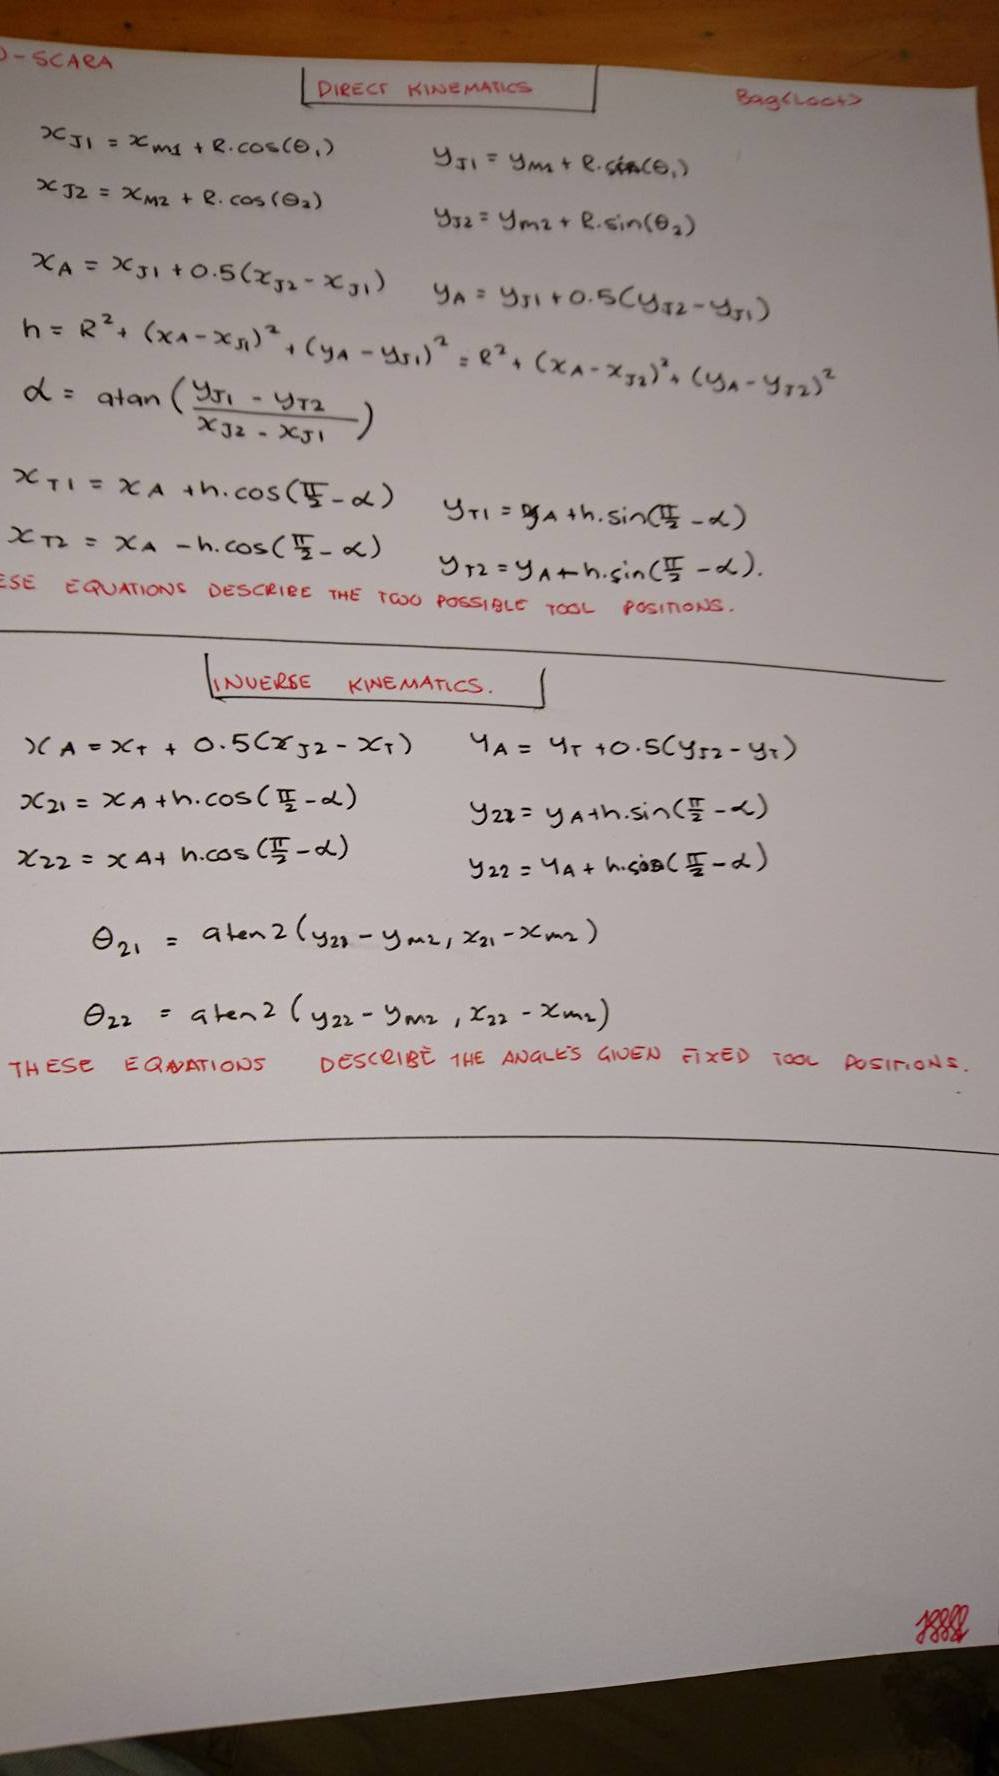 D-SCARA
DIRECT KINEMATICS
Bag<Loot>
x_J1 = x_M1 + R.cos(θ₁) y_J1 = y_M1 + R.sin(θ₁)
x_J2 = x_M2 + R.cos(θ₂) y_J2 = y_M2 + R.sin(θ₂)
x_A = x_J1 + 0.5(x_J2 - x_J1) y_A = y_J1 + 0.5(y_J2 - y_J1)
h = R² + (x_A - x_J1)² + (y_A - y_J1)² = R² + (x_A - x_J2)² + (y_A - y_J2)²
α = atan((y_J1 - y_J2)/(x_J2 - x_J1))
x_T1 = x_A + h.cos(π/2 - α) y_T1 = y_A + h.sin(π/2 - α)
x_T2 = x_A - h.cos(π/2 - α) y_T2 = y_A + h.sin(π/2 - α).
ESE EQUATIONS DESCRIBE THE TWO POSSIBLE TOOL POSITIONS.
INVERSE KINEMATICS.
x_A = x_T + 0.5(x_J2 - x_T) y_A = y_T + 0.5(y_J2 - y_T)
x_21 = x_A + h.cos(π/2 - α) y_21 = y_A + h.sin(π/2 - α)
x_22 = x_A + h.cos(π/2 - α) y_22 = y_A + h.sin(π/2 - α)
θ_21 = aten2(y_21 - y_M2, x_21 - x_M2)
θ_22 = aten2(y_22 - y_M2, x_22 - x_M2)
THESE EQUATIONS DESCRIBE THE ANGLES GIVEN FIXED TOOL POSITIONS.